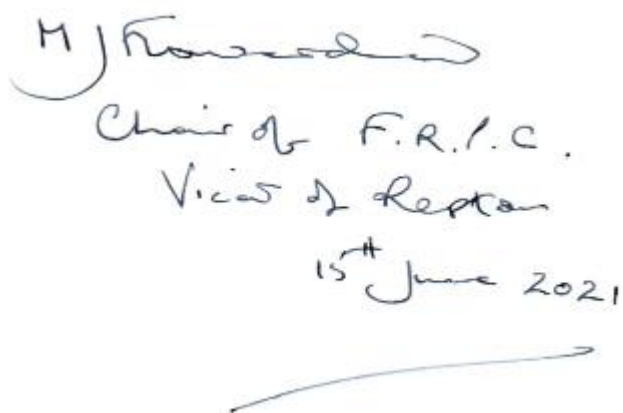 M J Flowerdew
Chair of
Vicar of Repton
15th June 2021